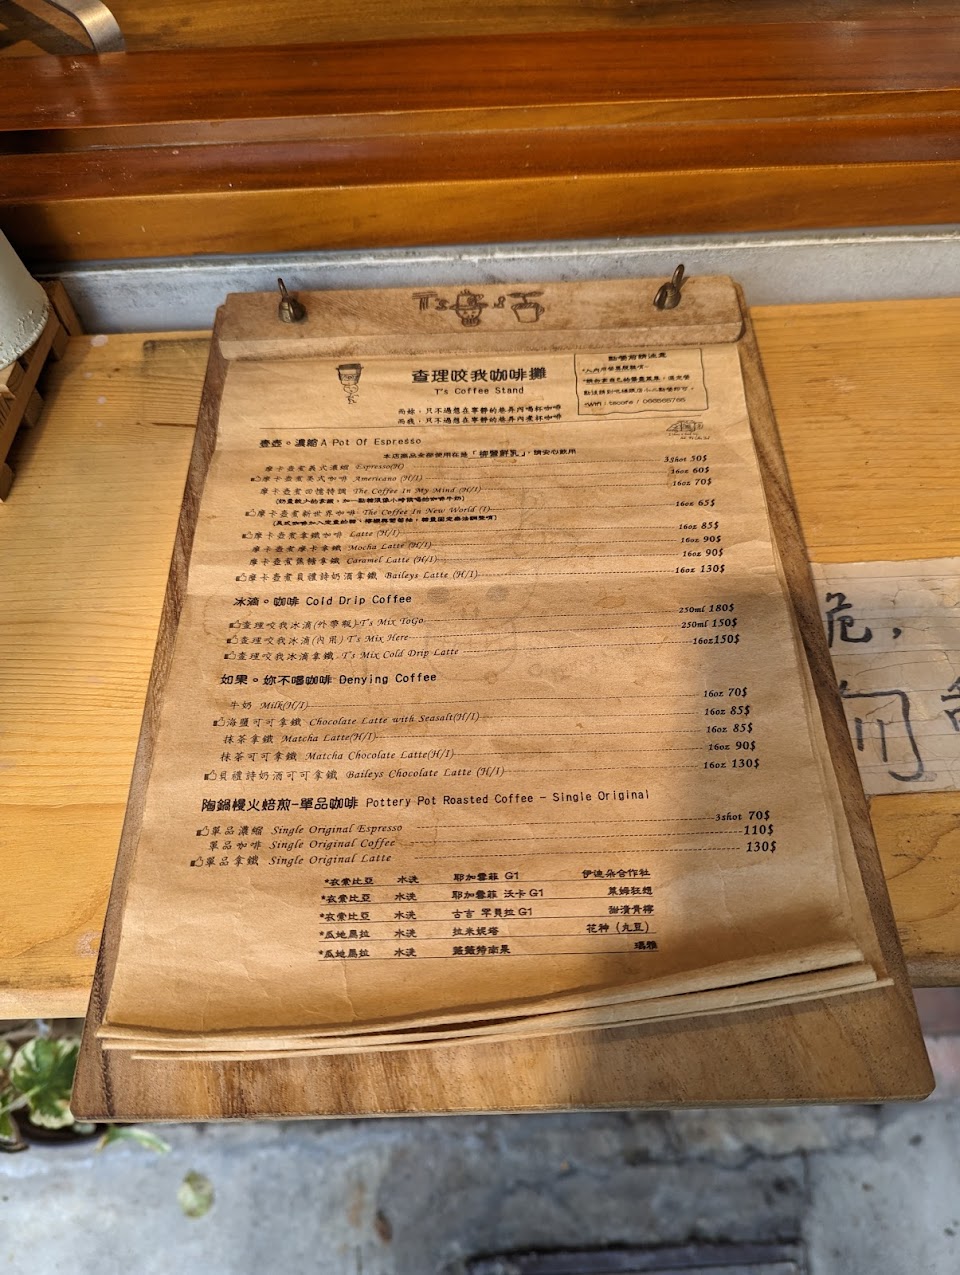 T's
查理咬我咖啡攤
T's Coffee Stand
點餐前請注意
尚妹，只不過想在寧靜的巷弄內喝杯咖啡
尚我，只不過想在寧靜的巷弄內煮杯咖啡
壹壺。濃縮 A Pot Of Espresso
摩卡壺煮義式濃縮 Espresso(H) 3shot 50$
摩卡壺煮美式咖啡 Americano (H/I) 16oz 60$
摩卡壺煮回憶特調 The Coffee In My Mind (H/I) 16oz 70$
摩卡壺煮新世界咖啡 The Coffee In New World (I) 16oz 65$
摩卡壺煮拿鐵咖啡 Latte (H/I) 16oz 85$
摩卡壺煮摩卡拿鐵 Mocha Latte (H/I) 16oz 90$
摩卡壺煮焦糖拿鐵 Caramel Latte (H/I) 16oz 90$
摩卡壺煮貝禮詩奶酒拿鐵 Baileys Latte (H/I) 16oz 130$
冰滴。咖啡 Cold Drip Coffee
查理咬我冰滴(外帶瓶) T's Mix ToGo 250ml 180$
查理咬我冰滴(內用) T's Mix Here 250ml 150$
查理咬我冰滴拿鐵 T's Mix Cold Drip Latte 16oz 150$
如果。妳不喝咖啡 Denying Coffee
牛奶 Milk(H/I) 16oz 70$
海鹽可可拿鐵 Chocolate Latte with Seasalt(H/I) 16oz 85$
抹茶拿鐵 Matcha Latte(H/I) 16oz 85$
抹茶可可拿鐵 Matcha Chocolate Latte(H/I) 16oz 90$
貝禮詩奶酒可可拿鐵 Baileys Chocolate Latte (H/I) 16oz 130$
陶鍋慢火焙煎-單品咖啡 Pottery Pot Roasted Coffee - Single Original
單品濃縮 Single Original Espresso 3shot 70$
單品咖啡 Single Original Coffee 110$
單品拿鐵 Single Original Latte 130$
*衣索比亞 水洗 耶加雪菲 G1 伊迪朵合作社
*衣索比亞 水洗 耶加雪菲 沃卡 G1 萊姆狂想
*衣索比亞 水洗 古吉 罕貝拉 G1 甜漬青檸
*瓜地馬拉 水洗 拉米妮塔 花神（丸豆）
*瓜地馬拉 水洗 薇薇特南果
危，